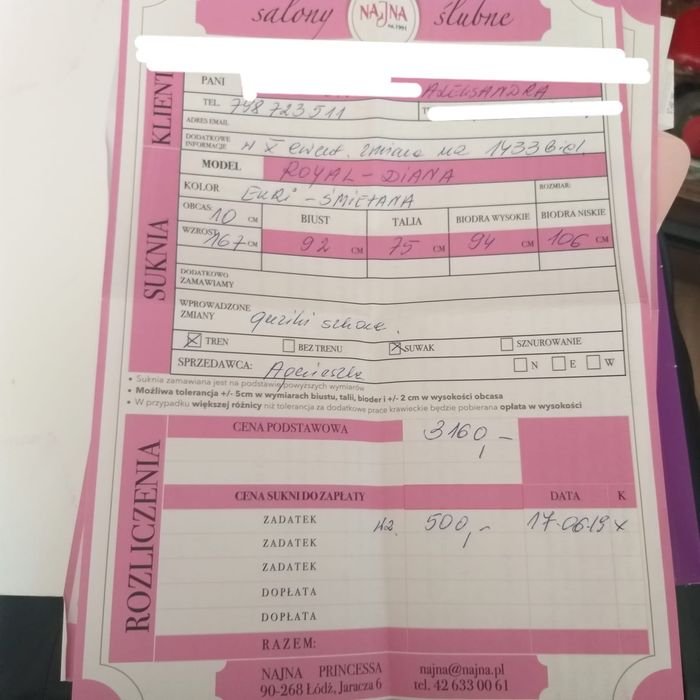 salony NAJNA ślubne
KLIENT
PANI ALEKSANDRA
TEL. 798 723 511
ADRES EMAIL
DODATKOWE INFORMACJE W X ewent. zmiana na 1433 Biel.
SUKNIA
MODEL ROYAL - DIANA
KOLOR EKRI - ŚMIETANA ROZMIAR:
OBCAS: 10 CM BIUST TALIA BIODRA WYSOKIE BIODRA NISKIE
WZROST 167 CM 92 CM 75 CM 94 CM 106 CM
DODATKOWO ZAMAWIAMY
WPROWADZONE ZMIANY guziki
X TREN BEZ TRENU X SUWAK SZNUROWANIE
SPRZEDAWCA: Agnieszka N E W
• Suknia zamawiana jest na podstawie powyższych wymiarów
• Możliwa tolerancja +/- 5cm w wymiarach biustu, talii, bioder i +/- 2 cm w wysokości obcasa
• W przypadku większej różnicy niż tolerancja za dodatkowe prace krawieckie będzie pobierana opłata w wysokości
ROZLICZENIA
CENA PODSTAWOWA 3160,-
CENA SUKNI DO ZAPŁATY DATA K
ZADATEK 500,- 17-06-19 x
ZADATEK
ZADATEK
DOPŁATA
DOPŁATA
RAZEM:
NAJNA PRINCESSA najna@najna.pl
90-268 Łódź, Jaracza 6 tel. 42 633 00 61